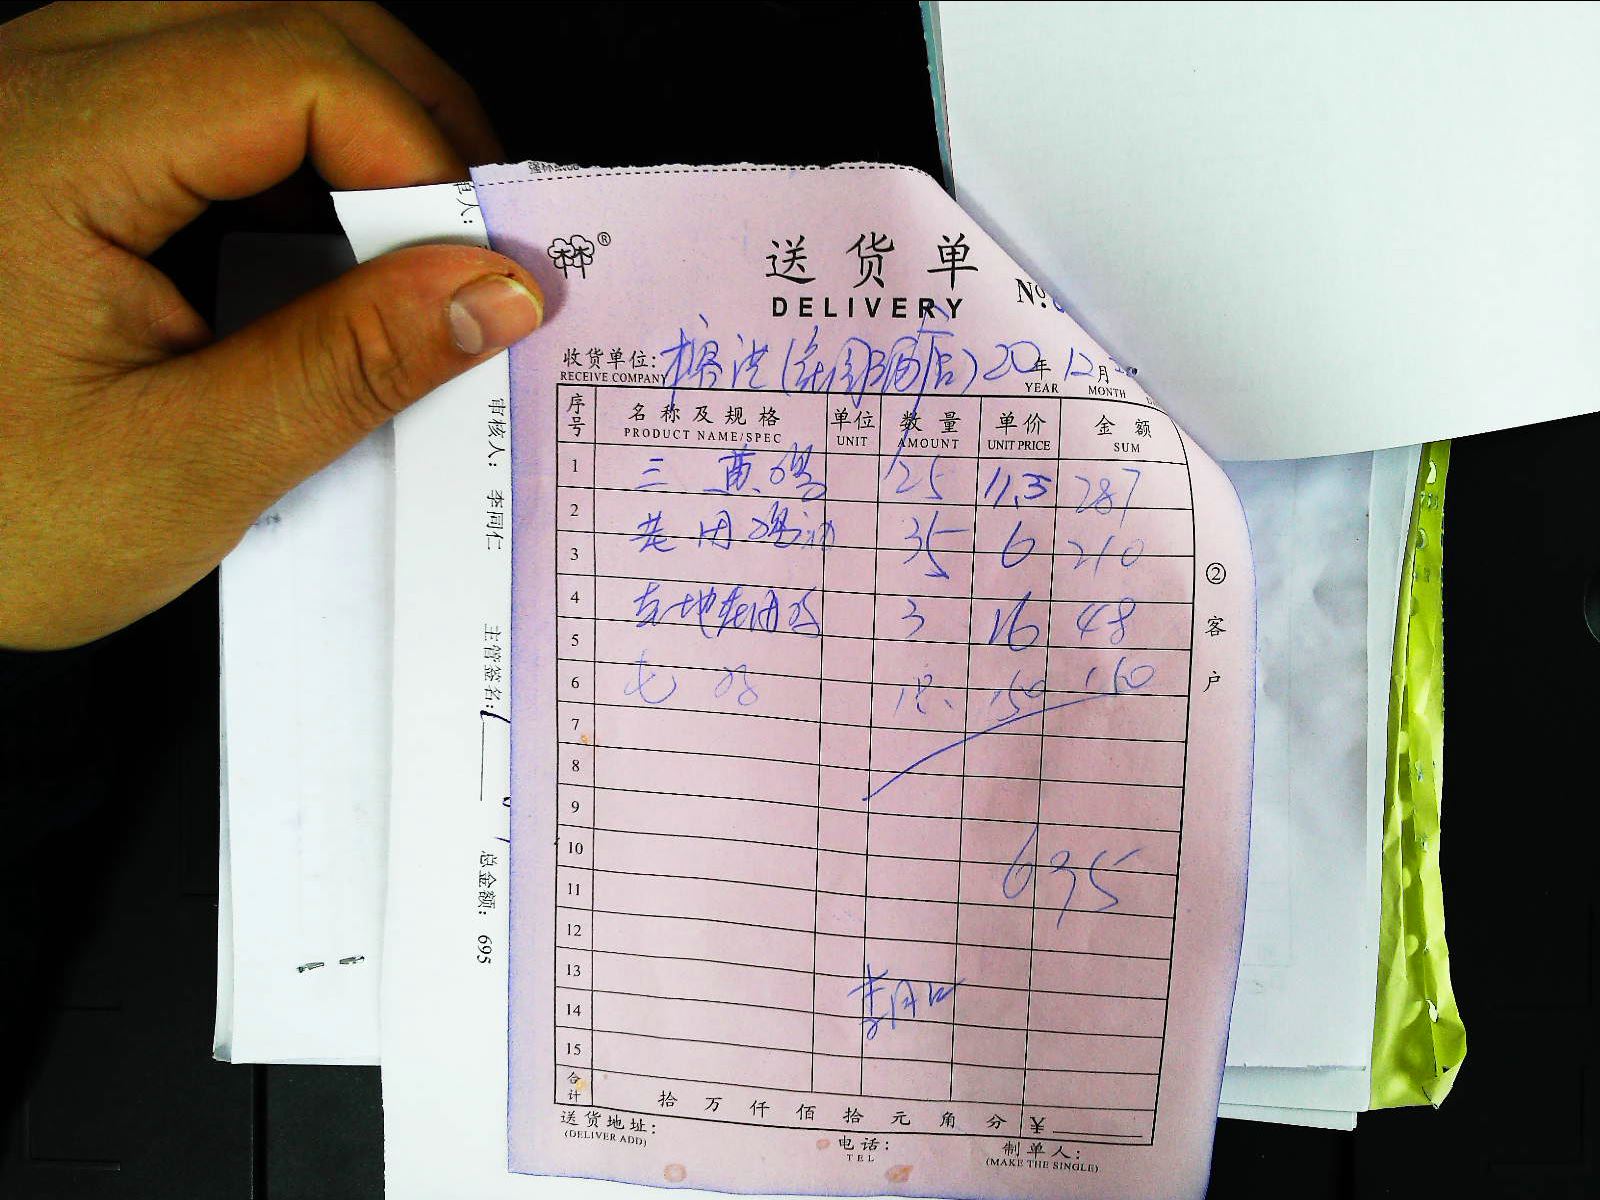 送货单
DELIVERY
No.
收货单位: 20年 12月
RECEIVE COMPANY YEAR MONTH
序号 名称及规格 单位 数量 单价 金额
PRODUCT NAME/SPEC UNIT AMOUNT UNIT PRICE SUM
1 三黄鸡 25 11.5 287
2
3 35 6 210
4 3 16 48
5
6 150 150
7
8
9
10 695
11
12
13
14
15
合计 拾 万 仟 佰 拾 元 角 分 ¥
送货地址: 电话: 制单人:
(DELIVER ADD) TEL (MAKE THE SINGLE)
② 客户
单人:
审核人: 李同仁
主管签名:
总金额: 695